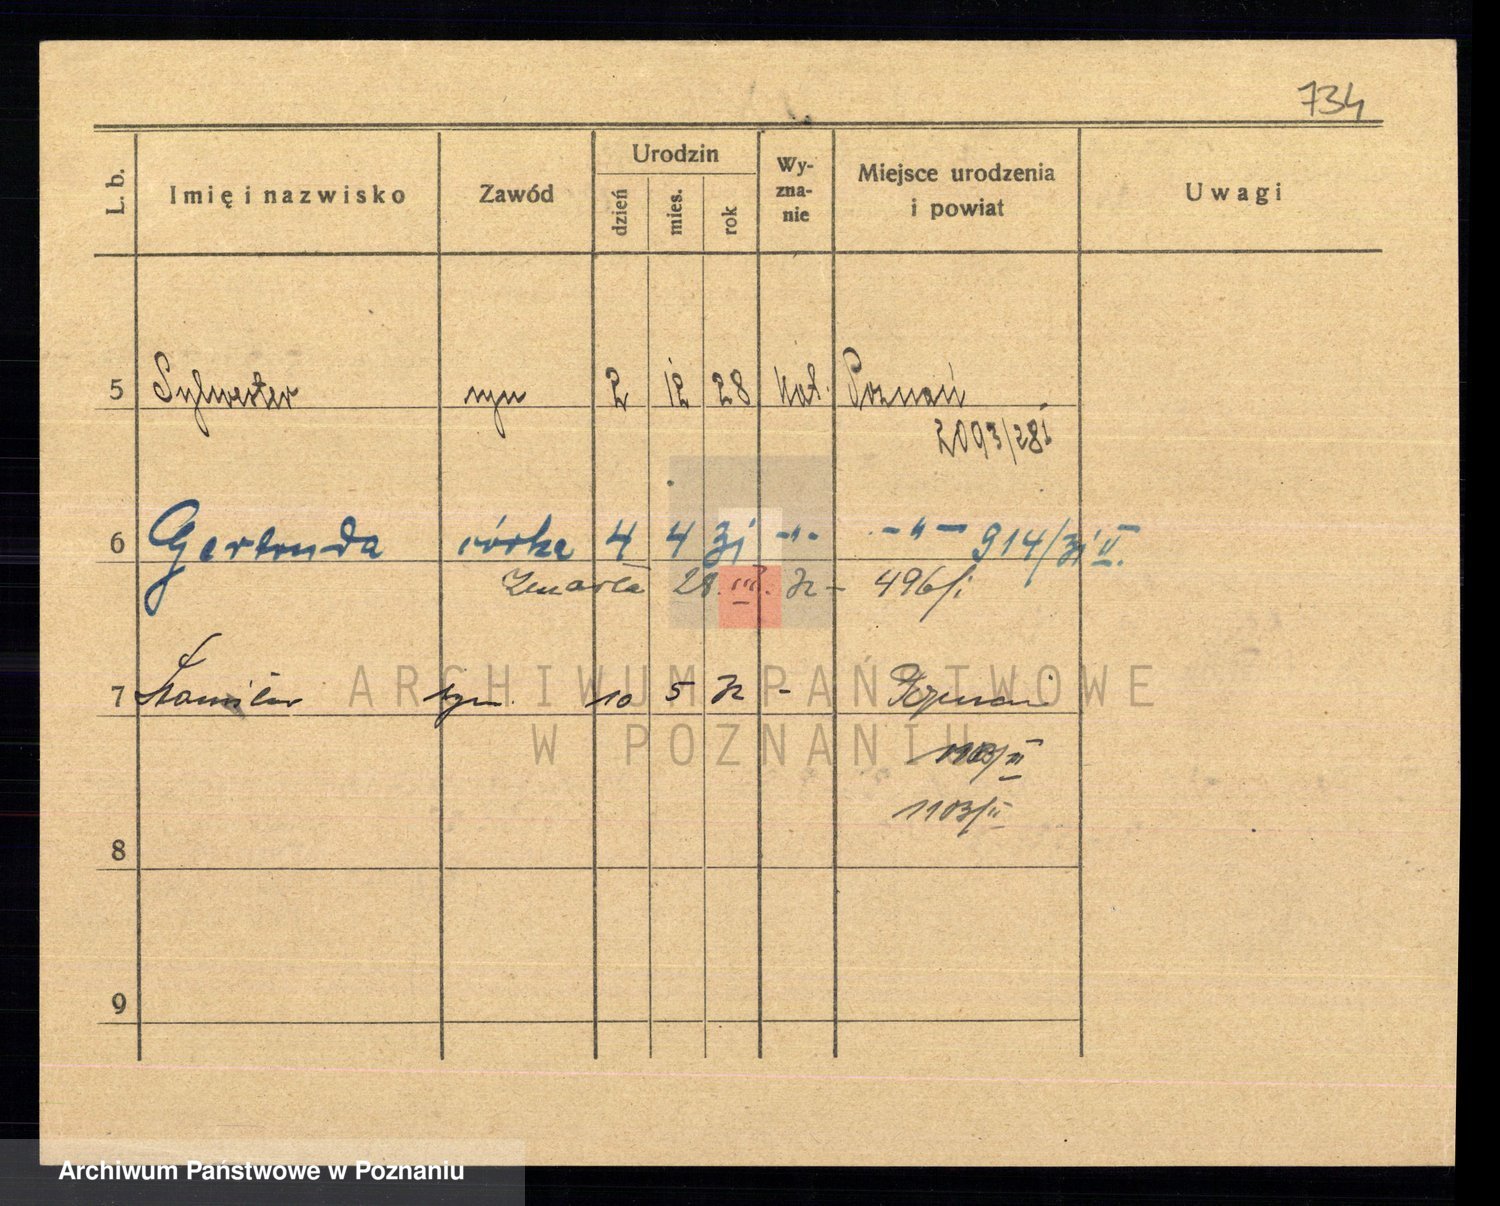 734
L. b. Imię i nazwisko Zawód Urodzin dzień mies. rok Wy-zna-nie Miejsce urodzenia i powiat Uwagi
5 Sylwester syn 2 12 28 kat. Poznań
2093/28 i
6 Gertruda córka 4 4 31 -"- -"- 914/31 II.
Zmarła 28. III. 32 - 496/i
7 Stanisław syn 10 5 32 - Poznań
1103/II
1103/II
8
9
ARCHIWUM PAŃSTWOWE
W POZNANIU
Archiwum Państwowe w Poznaniu